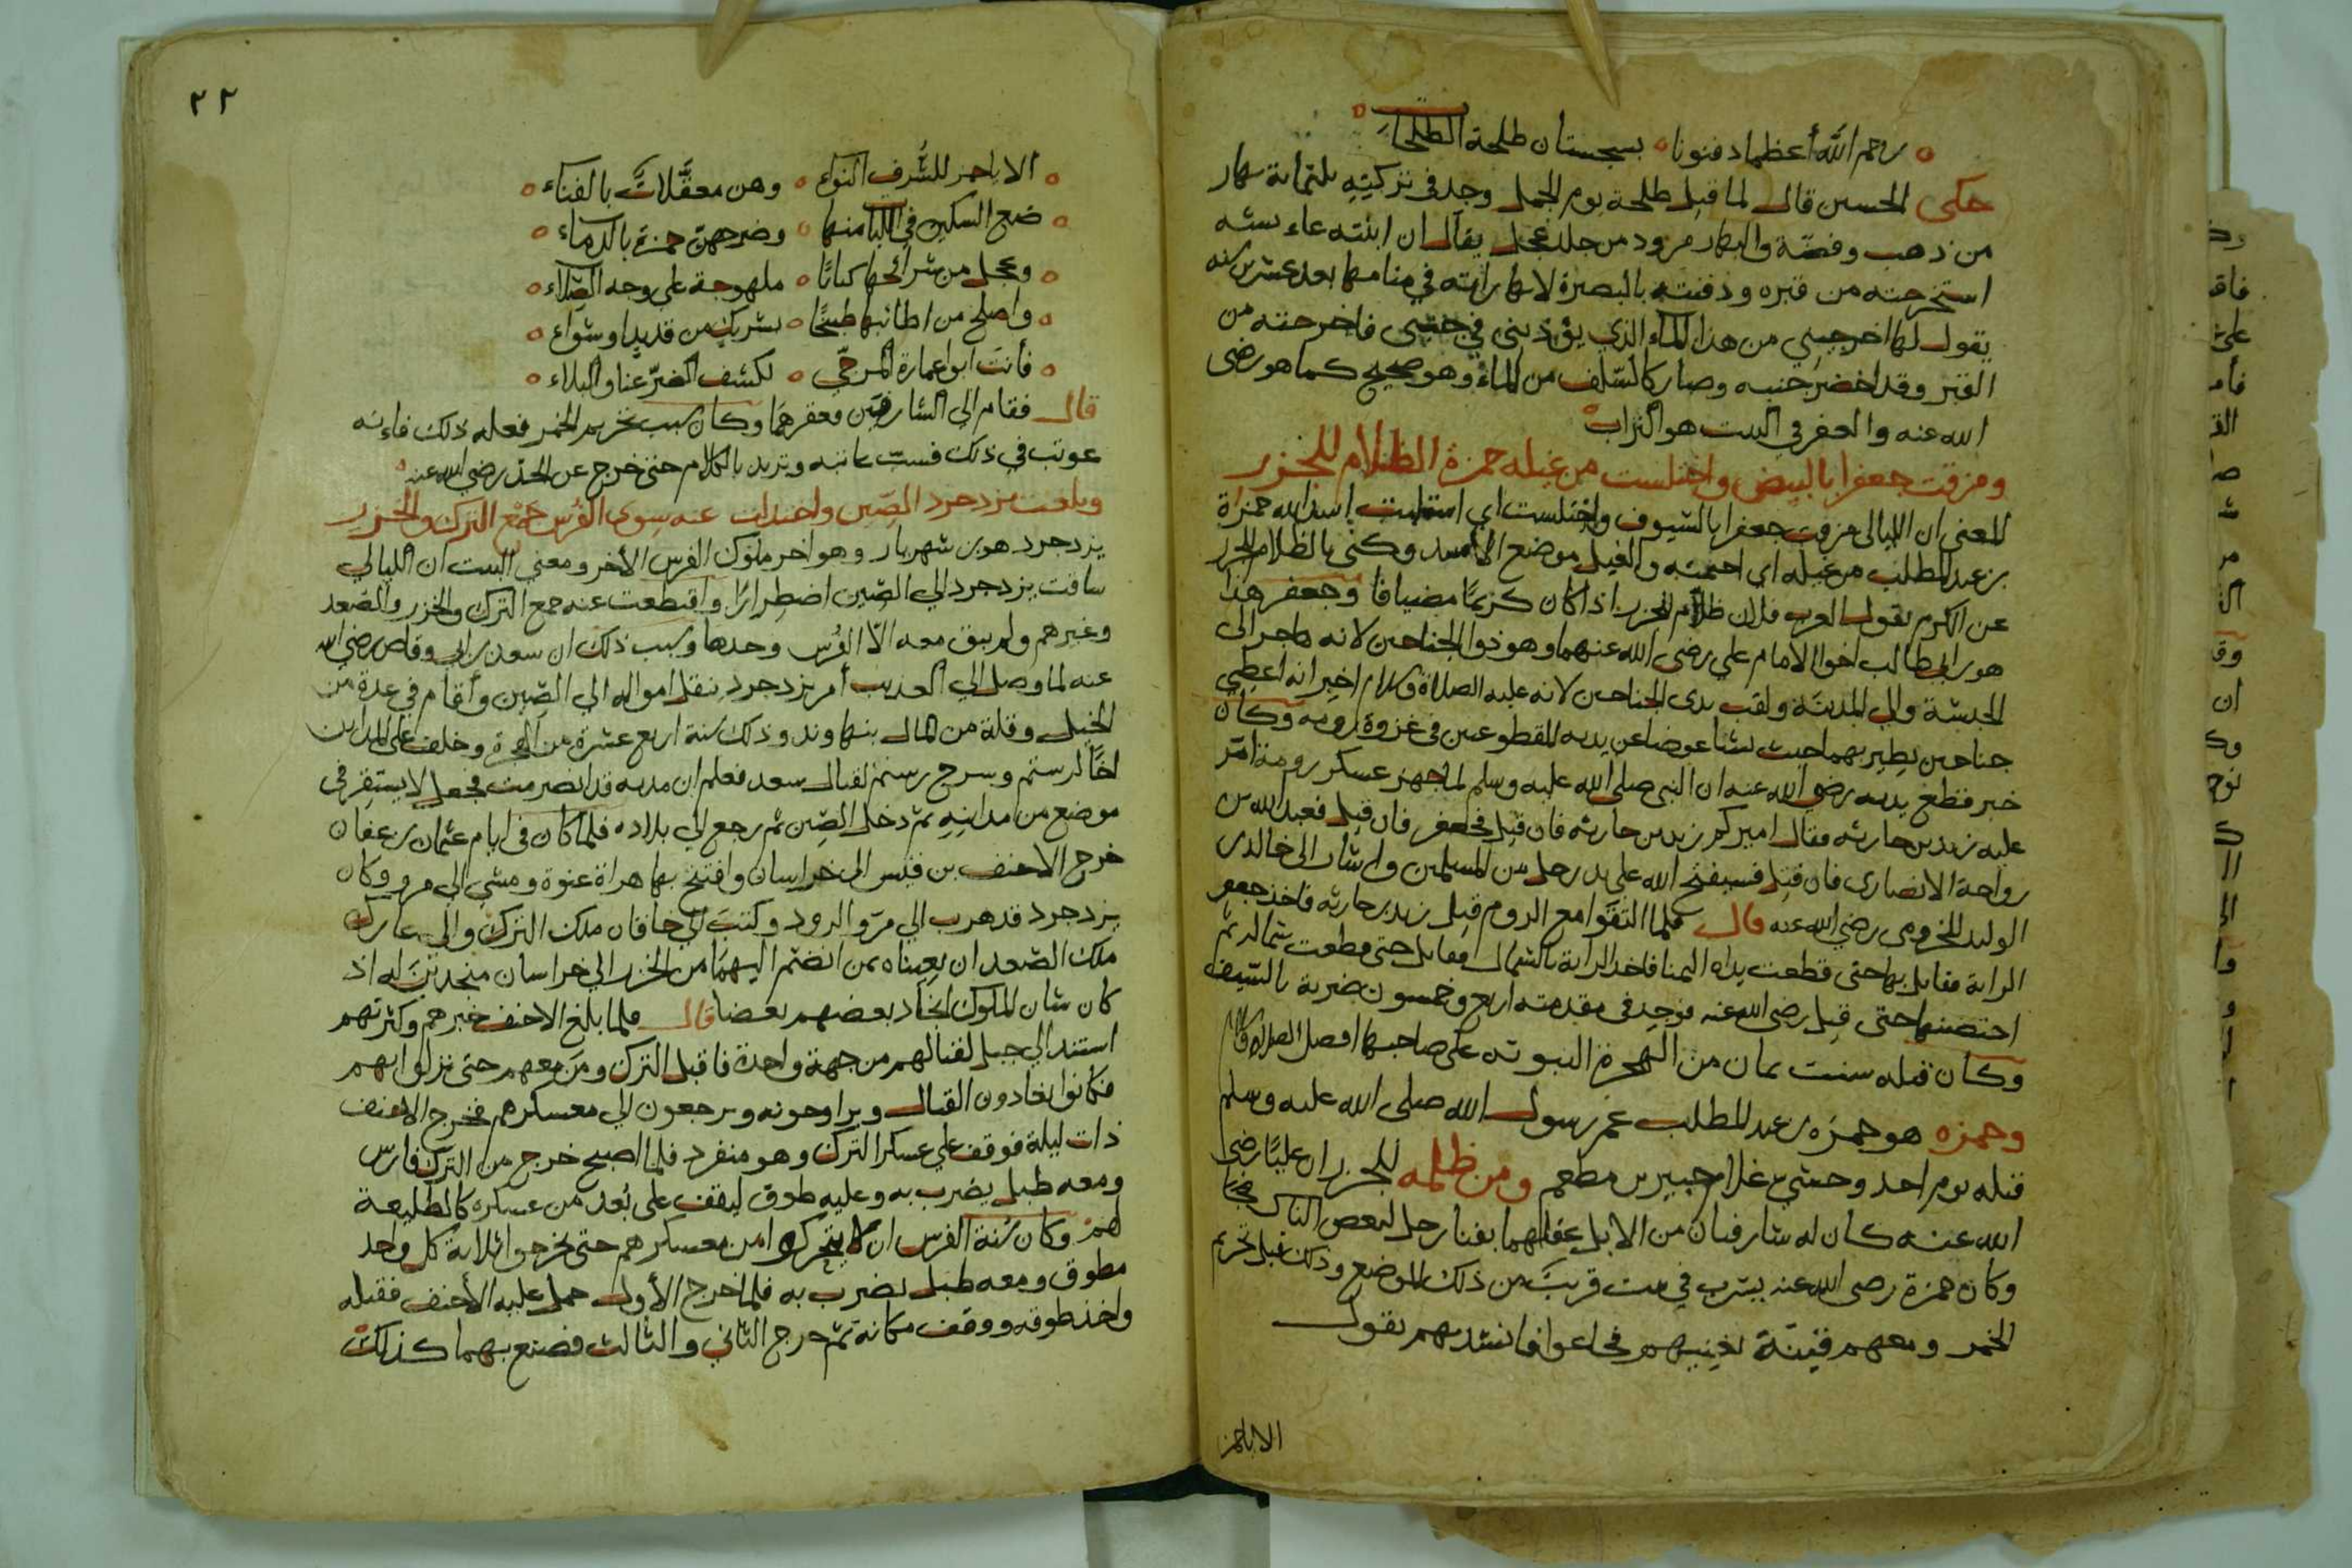 رحم الله أعظما دفنوها بسجستان طلحة الطلحات
حكى الحسين قال لما قتل طلحة يوم الجمل وجد في تركيته ثلثماية بهار
من ذهب وفضة والبهار مزود من جلد عجل يقال ان ابنته عاءشه
استخرجته من قبره ودفنته بالبصرة لانها راته في منامها بعد عشرين سنه
يقول لها اخرجيني من هذا الماء الذي يؤذيني في جنبي فاخرجته من
القبر وقد اخضر جنبه وصار كالسلف من الماء وهو صحيح كما هو رضي
الله عنه والعفر في البيت هو التراب
ومزقت جعفرا بالبيض واختلست من غيله حمزة الظلام للجزر
المعنى ان الليالي مزقت جعفرا بالسيوف واختلست اي استلبت اسد الله حمزة
بن عبد المطلب من غيله اي اجمته والغيل موضع الاسد وكنى بالظلام للجزر
عن الكرم تقول العرب فلان ظلام للجزر اذا كان كريما مضيافا وجعفر هذا
هو بن ابي طالب اخو الامام علي رضي الله عنهما وهو ذو الجناحين لانه هاجر الى
الحبشة والي المدينة ولقب بذي الجناحين لانه عليه الصلاة والسلام اخبر انه اعطي
جناحين يطير بهما حيث يشا عوضا عن يديه المقطوعتين في غزوة روميه وكان
خبر قطع يديه رضي الله عنه ان النبي صلى الله عليه وسلم لما جهز عسكر رومة امر
عليه زيد بن حارثه فقال اميركم زيد بن حارثه فان قتل فجعفر فان قتل فعبد الله بن
رواحة الانصاري فان قتل فسيفتح الله على يد رجل من المسلمين واشار الى خالد بن
الوليد المخزومي رضي الله عنه قال فلما التقوا مع الروم قتل زيد بن حارثه فاخذ جعفر
الراية فقاتل بها حتى قطعت يداه اليمنا فاخذ الراية بالشمال فقاتل حتى قطعت شماله ثم
احتضنها حتى قتل رضي الله عنه فوجد في مقدمته اربع وخمسون ضربة بالسيف
وكان قتله سنت ثمان من الهجرة النبويه على صاحبها افضل الصلاة والسلام
وحمزه هو حمزه بن عبد المطلب عم رسول الله صلى الله عليه وسلم
قتله يوم احد وحشي غلام جبير بن مطعم ومن ظلمه للجزر ان عليا رضي
الله عنه كان له شارفان من الابل عقلهما بفنا رجل لبعض الناس
وكان حمزة رضي الله عنه يشرب في بيت قريب من ذلك الموضع وذلك قبل تحريم
الخمر ومعهم قينة تغنيهم فجاعوا فانشدتهم تقول
الا يا حمز
٢٢
الا يا حمز للشرف النواء وهن معقلات بالفناء
ضع السكين في اللبا منها وضرجهن حمزة بالدماء
وعجل من شرائحها كبابا ملهوجة على وجه الصلاء
واصلح من اطائبها طبيخا لشربك من قديد او شواء
فأنت ابو عمارة المرجي لكشف الضر عنا والبلاء
قال فقام الى الشارفين فعقرهما وكان سبب تحريم الخمر فعله ذلك فاءنه
عوتب في ذلك فسب عاتبه وتزيد بالكلام حتى خرج عن الحد رضي الله عنه
وبلغت يزدجرد الصين واختزلت عنه سوى الفرس جمع الترك والخزر
يزدجرد هو بن شهريار وهو اخر ملوك الفرس الأخر ومعني البيت ان الليالي
ساقت يزدجرد الي الصين اضطرارا واقتطعت عنه جمع الترك والخزر والصغد
وغيرهم ولم يبق معه الا الفرس وحدها وسبب ذلك ان سعد بن ابي وقاص رضي الله
عنه لما وصل الي العذيب أمر يزدجرد بنقل امواله الي الصين وأقام في عدة من
الخيل وقلة من المال بنهاوند وذلك سنة اربع عشرة من الهجرة وخلف على المداين
اخا لرستم وسرح رستم لقتال سعد فعلم ان مدته قد انصرمت فجعل لا يستقر في
موضع من مداينه ثم دخل الصين ثم رجع الي بلاده فلما كان في ايام عثمان بن عفان
خرج الاحنف بن قيس الى خراسان وافتتح بها هراة عنوة ومشي الي مرو وكان
يزدجرد قد هرب الي مرو الرود وكتب الي خاقان ملك الترك والي عارك
ملك الصغد ان يعيناه بمن انضم اليهما من الخزر الي خراسان منجدين له اذ
كان شان الملوك انجاد بعضهم بعضا قال فلما بلغ الاحنف خبرهم وكثرتهم
استند الي جبل لقتالهم من جهة واحدة فاقبل الترك ومن معهم حتى نزلوا بهم
فكانوا يغادون القتال ويراوحونه ويرجعون الي معسكرهم فخرج الاحنف
ذات ليلة فوقف علي عسكر الترك وهو منفرد فلما اصبح خرج من الترك فارس
ومعه طبل يضرب به وعليه طوق ليقف على بعد من عسكره كالطليعة
لهم وكان سنة الفرس ان لا يتحركوا من معسكرهم حتى يخرجوا ثلاثة كل واحد
مطوق ومعه طبل يضرب به فلما خرج الأول حمل عليه الأحنف فقتله
واخذ طوقه ووقف مكانه ثم خرج الثاني والثالث فصنع بهما كذلك